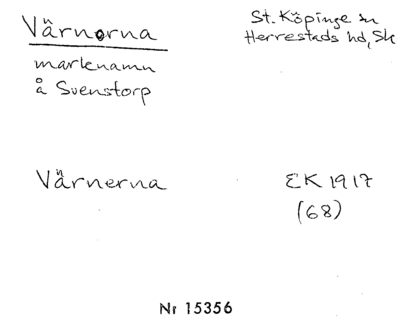 Värnorna
St. Köpinge sn
Herrestads hd, Sk
marknamn
å Svenstorp
Värnerna
EK 1917
(68)
Nr 15356